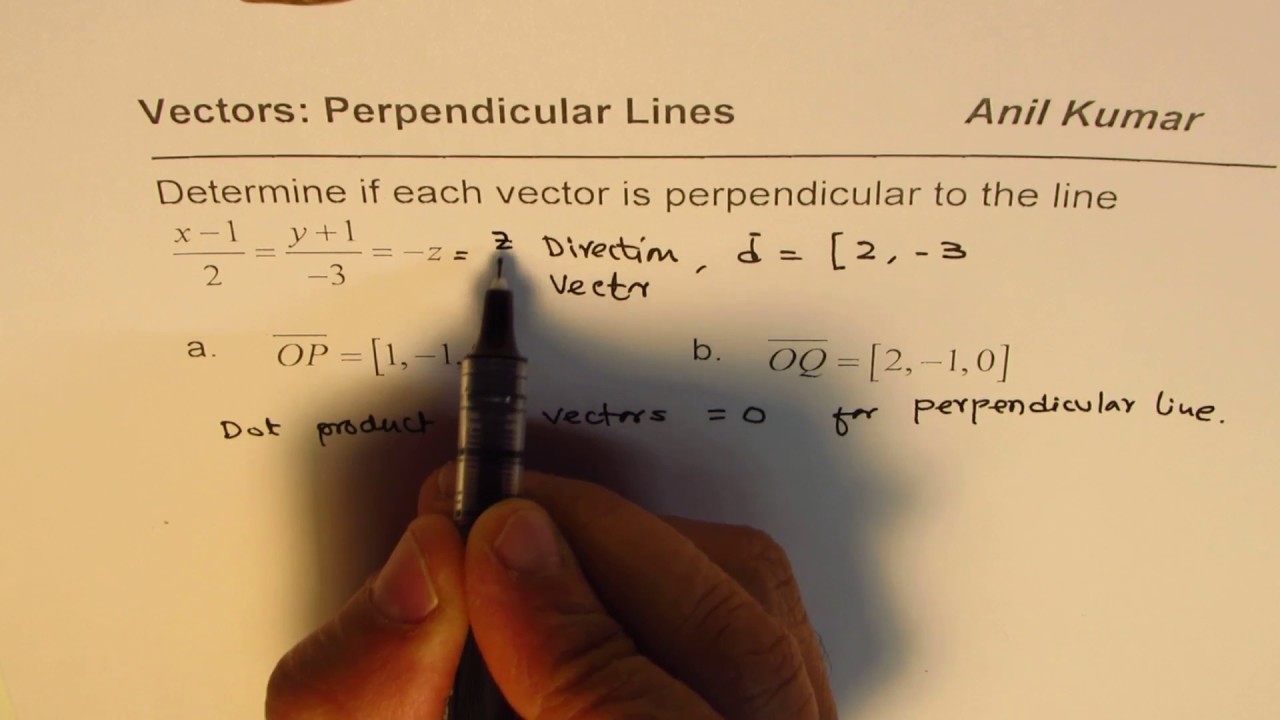 Vectors: Perpendicular Lines Anil Kumar
Determine if each vector is perpendicular to the line
x − 1 / 2 = y + 1 / −3 = −z = z Direction Vector, d̄ = [2, -3
a. OP = [1, −1, b. OQ = [2, −1, 0]
Dot product vectors = 0 for perpendicular line.